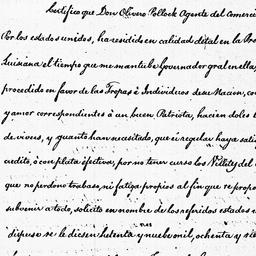 Certifico que Don Olivero Pollock Agente del Comercio
Por los estados unidos, ha residido en calidad de tal en la Pro
Luisiana el tiempo que me mantube Governador gral en ella,
procedido en favor de las Tropas è Individuos de su Nacion, con
y amor correspondientes à un buen Patriota, hacien doles
de vivres, y quanto han necesitado, que è regular haya satis
credito, ò con plata efectiva, por no tener curso los Villetes del
que no perdonò trabaxo, ni fatiga propios al fin que se propo
subvenir a todo, solicitò en nombre de los referidos estados
mas
dispuso se le diesen setenta y nueve mil, ochenta y sie